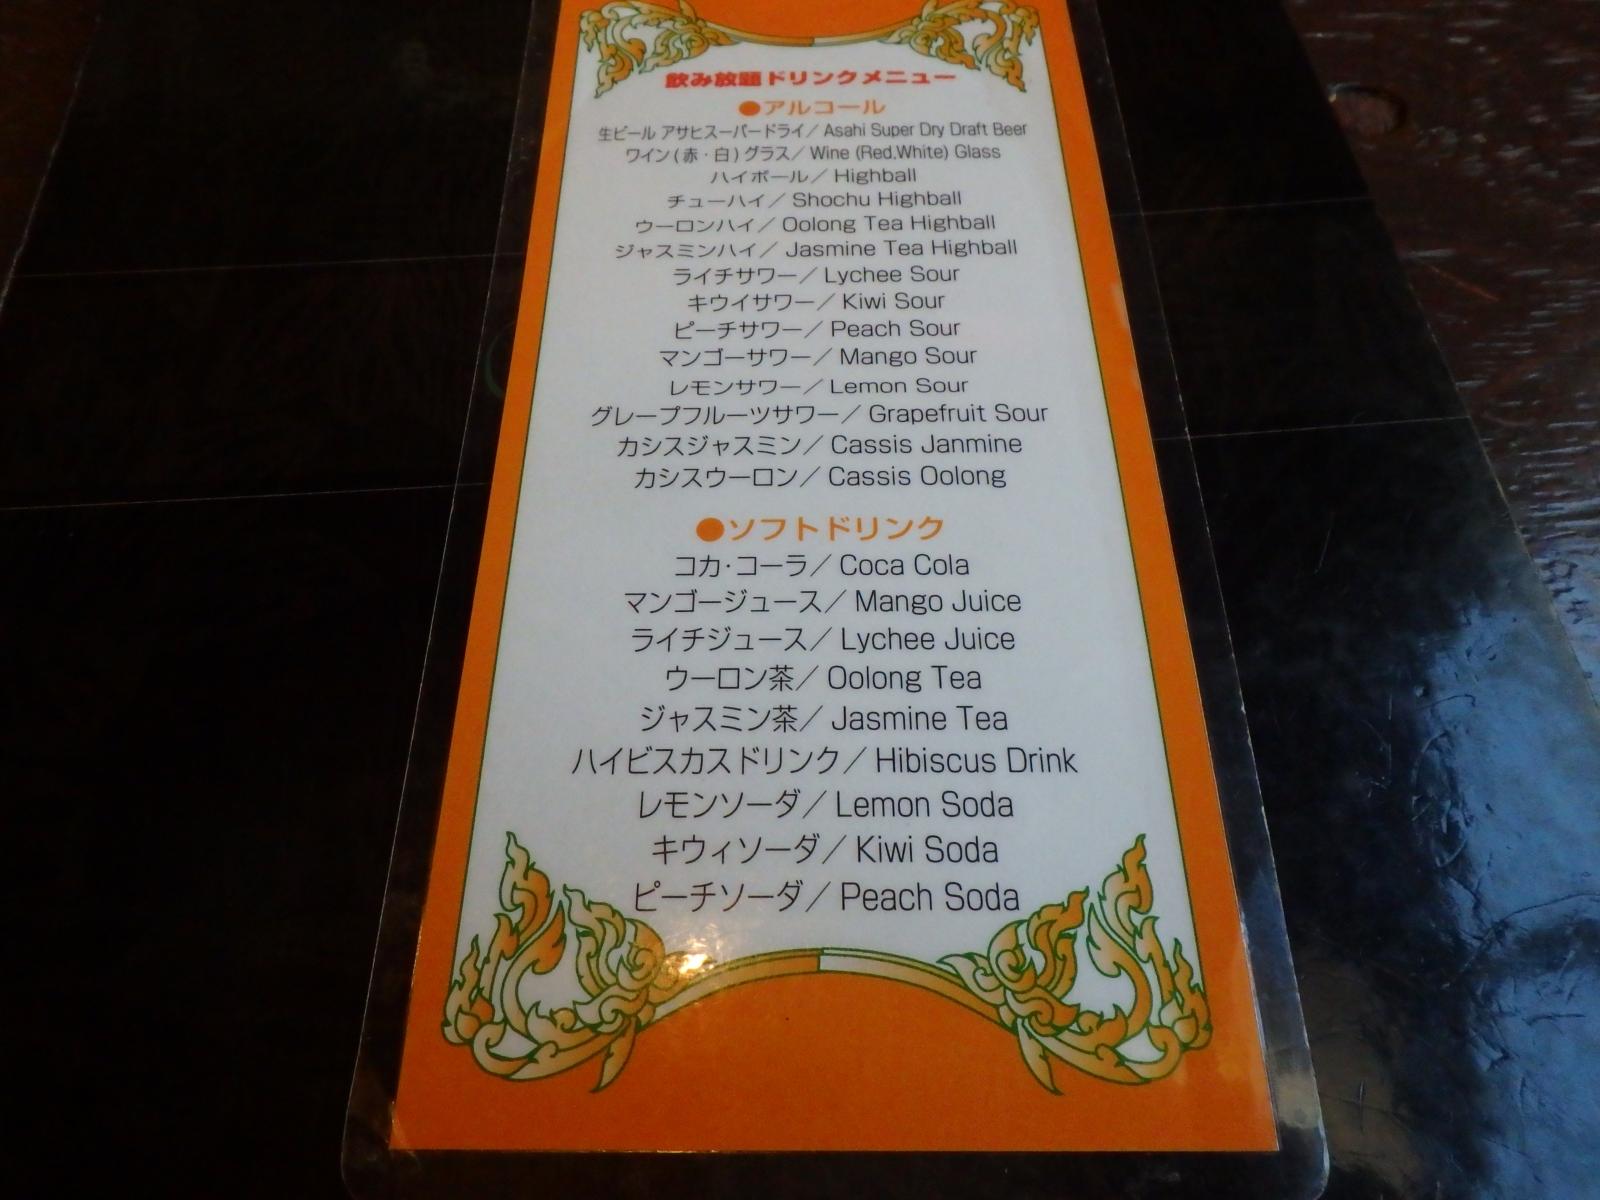 飲み放題ドリンクメニュー
●アルコール
生ビール アサヒスーパードライ／Asahi Super Dry Draft Beer
ワイン(赤・白)グラス／Wine (Red.White) Glass
ハイボール／Highball
チューハイ／Shochu Highball
ウーロンハイ／Oolong Tea Highball
ジャスミンハイ／Jasmine Tea Highball
ライチサワー／Lychee Sour
キウイサワー／Kiwi Sour
ピーチサワー／Peach Sour
マンゴーサワー／Mango Sour
レモンサワー／Lemon Sour
グレープフルーツサワー／Grapefruit Sour
カシスジャスミン／Cassis Janmine
カシスウーロン／Cassis Oolong
●ソフトドリンク
コカ・コーラ／Coca Cola
マンゴージュース／Mango Juice
ライチジュース／Lychee Juice
ウーロン茶／Oolong Tea
ジャスミン茶／Jasmine Tea
ハイビスカスドリンク／Hibiscus Drink
レモンソーダ／Lemon Soda
キウィソーダ／Kiwi Soda
ピーチソーダ／Peach Soda